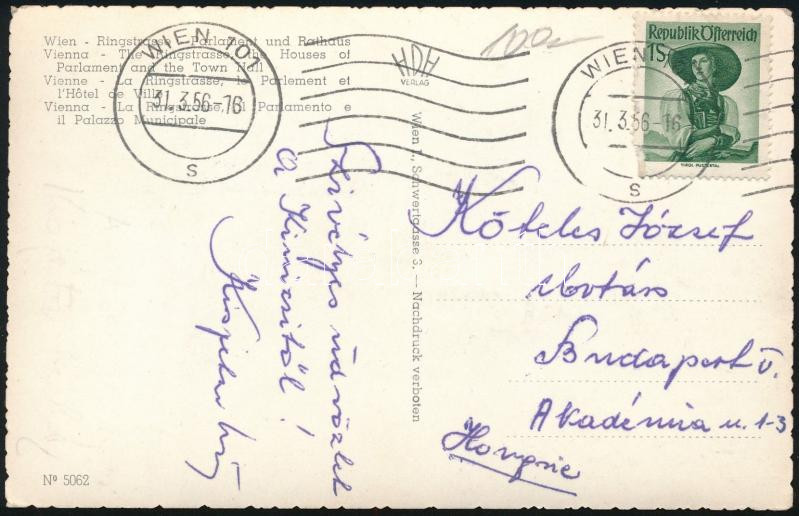 Wien - Ringstrasse, Parlament und Rathaus
Vienna - The Ringstrasse, the Houses of
Parlament and the Town Hall
Vienne - La Ringstrasse, le Parlement et
l'Hôtel de Ville
Vienna - La Ringstrasse, il Parlamento e
il Palazzo Municipale
WIEN 101
31.3.56-16
s
HDH
VERLAG
WIEN
31.3.56-16
s
Republik Österreich
1S
TIROL PUSTERTAL
Wien I., Schwertgasse 3. — Nachdruck verboten
Szivélyes üdvözlet
a Kinizsitől!
Köteles József
Budapest V.
Akadémia u. 1-3
Hongrie
Nº 5062